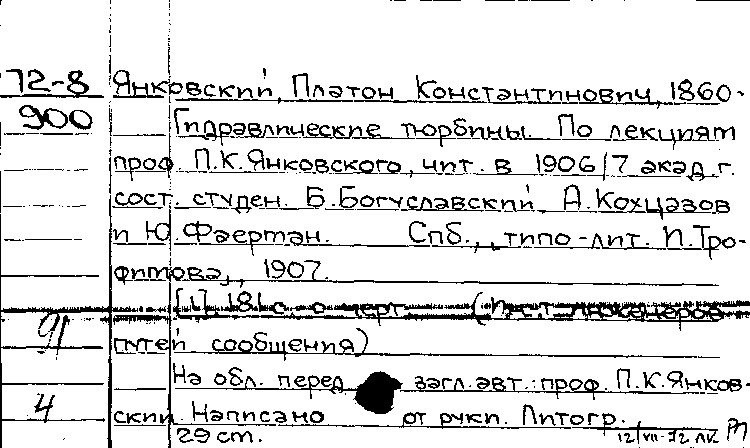 72-8 Янковский, Платон Константинович, 1860-
900 Гидравлические тюрбины. По лекциям
проф. П.К.Янковского, чит. в 1906/7 акад.г.
сост. студен. Б.Богуславский, А.Кохцазов
и Ю.Фаертан. Спб., типо-лит. И.Тро-
фимова, 1907.
[1], 181 с. с черт. (Ин-т инженеров
91 путей сообщения)
На обл. перед загл.авт.: проф. П.К.Янков-
4 ский. Написано от руки. Литогр.
29 cm. 12/VII-72 ЛК